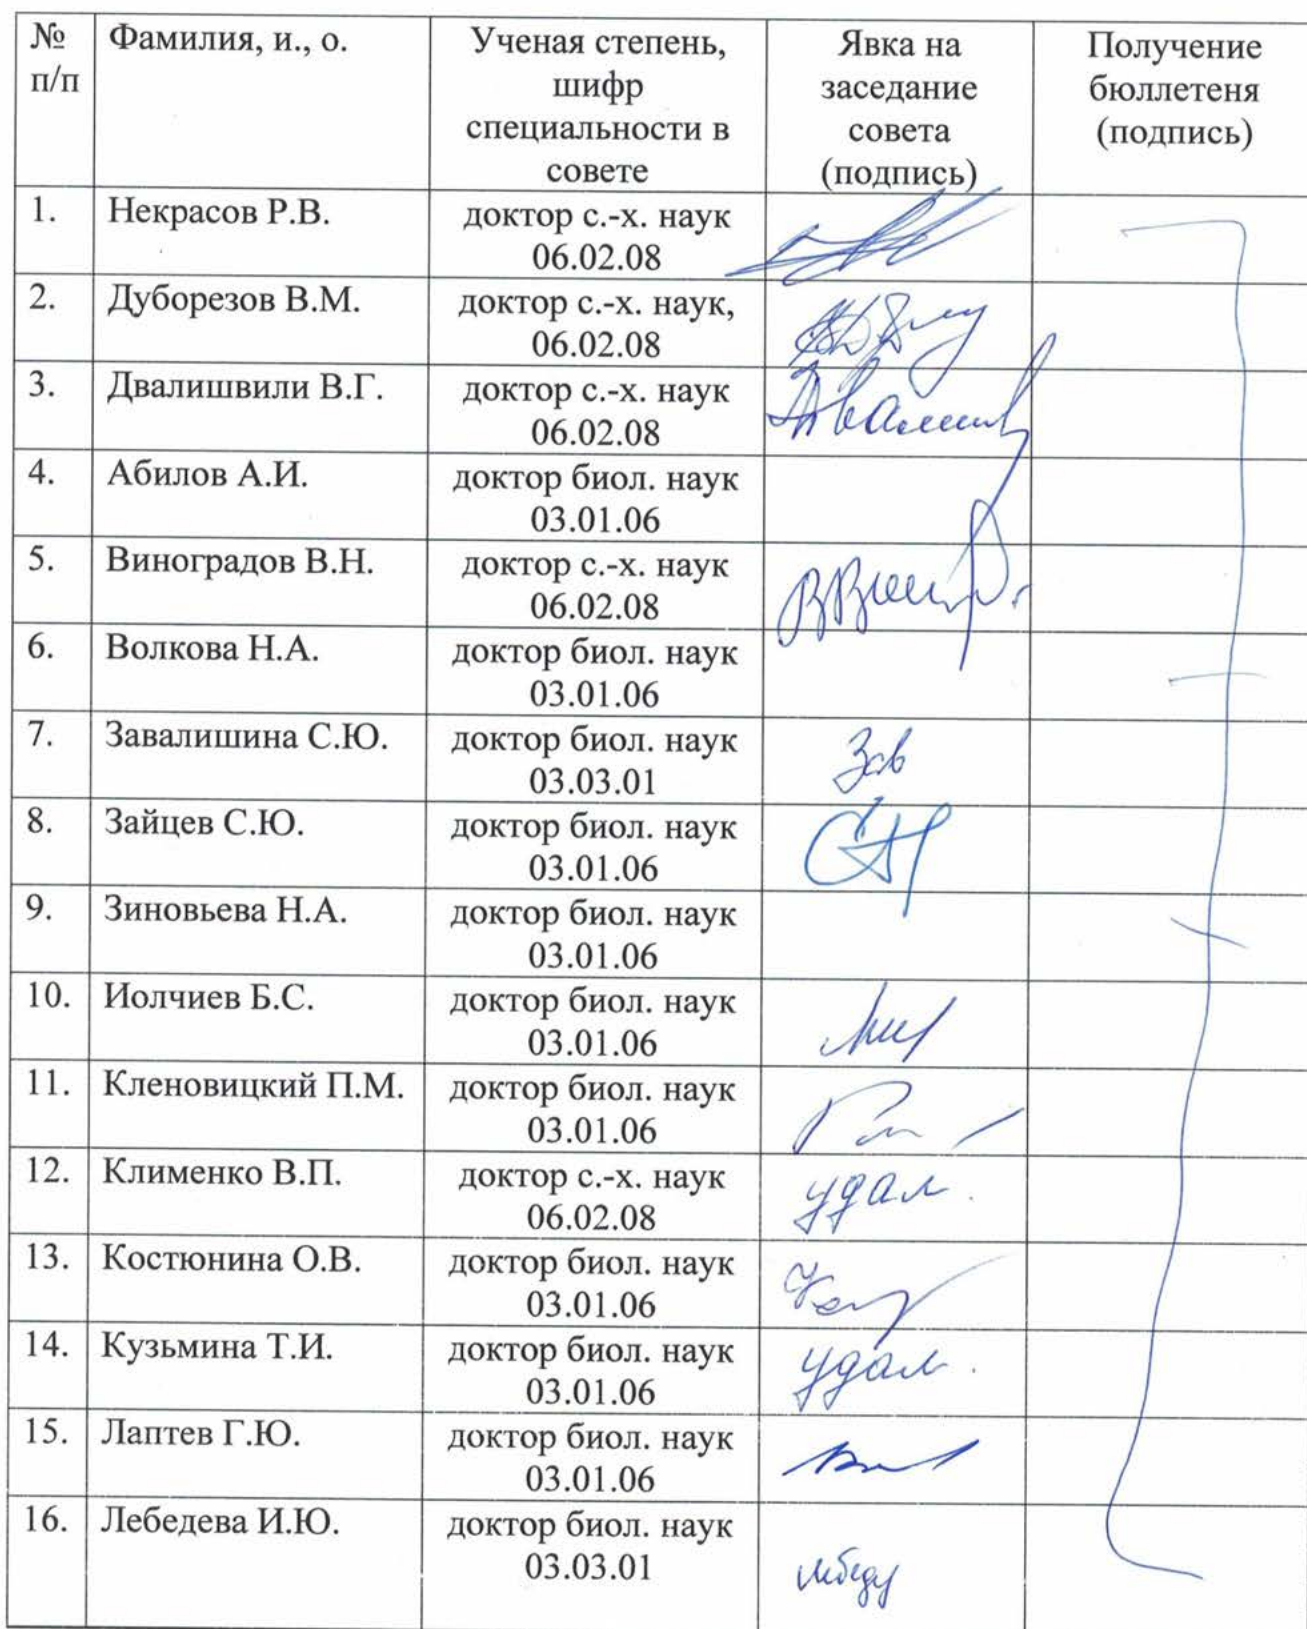 № п/п Фамилия, и., о. Ученая степень, шифр специальности в совете Явка на заседание совета (подпись) Получение бюллетеня (подпись)
1. Некрасов Р.В. доктор с.-х. наук 06.02.08
2. Дуборезов В.М. доктор с.-х. наук, 06.02.08
3. Двалишвили В.Г. доктор с.-х. наук 06.02.08
4. Абилов А.И. доктор биол. наук 03.01.06
5. Виноградов В.Н. доктор с.-х. наук 06.02.08
6. Волкова Н.А. доктор биол. наук 03.01.06
7. Завалишина С.Ю. доктор биол. наук 03.03.01 Зав
8. Зайцев С.Ю. доктор биол. наук 03.01.06
9. Зиновьева Н.А. доктор биол. наук 03.01.06
10. Иолчиев Б.С. доктор биол. наук 03.01.06
11. Кленовицкий П.М. доктор биол. наук 03.01.06
12. Клименко В.П. доктор с.-х. наук 06.02.08 удал.
13. Костюнина О.В. доктор биол. наук 03.01.06
14. Кузьмина Т.И. доктор биол. наук 03.01.06 удал.
15. Лаптев Г.Ю. доктор биол. наук 03.01.06
16. Лебедева И.Ю. доктор биол. наук 03.03.01